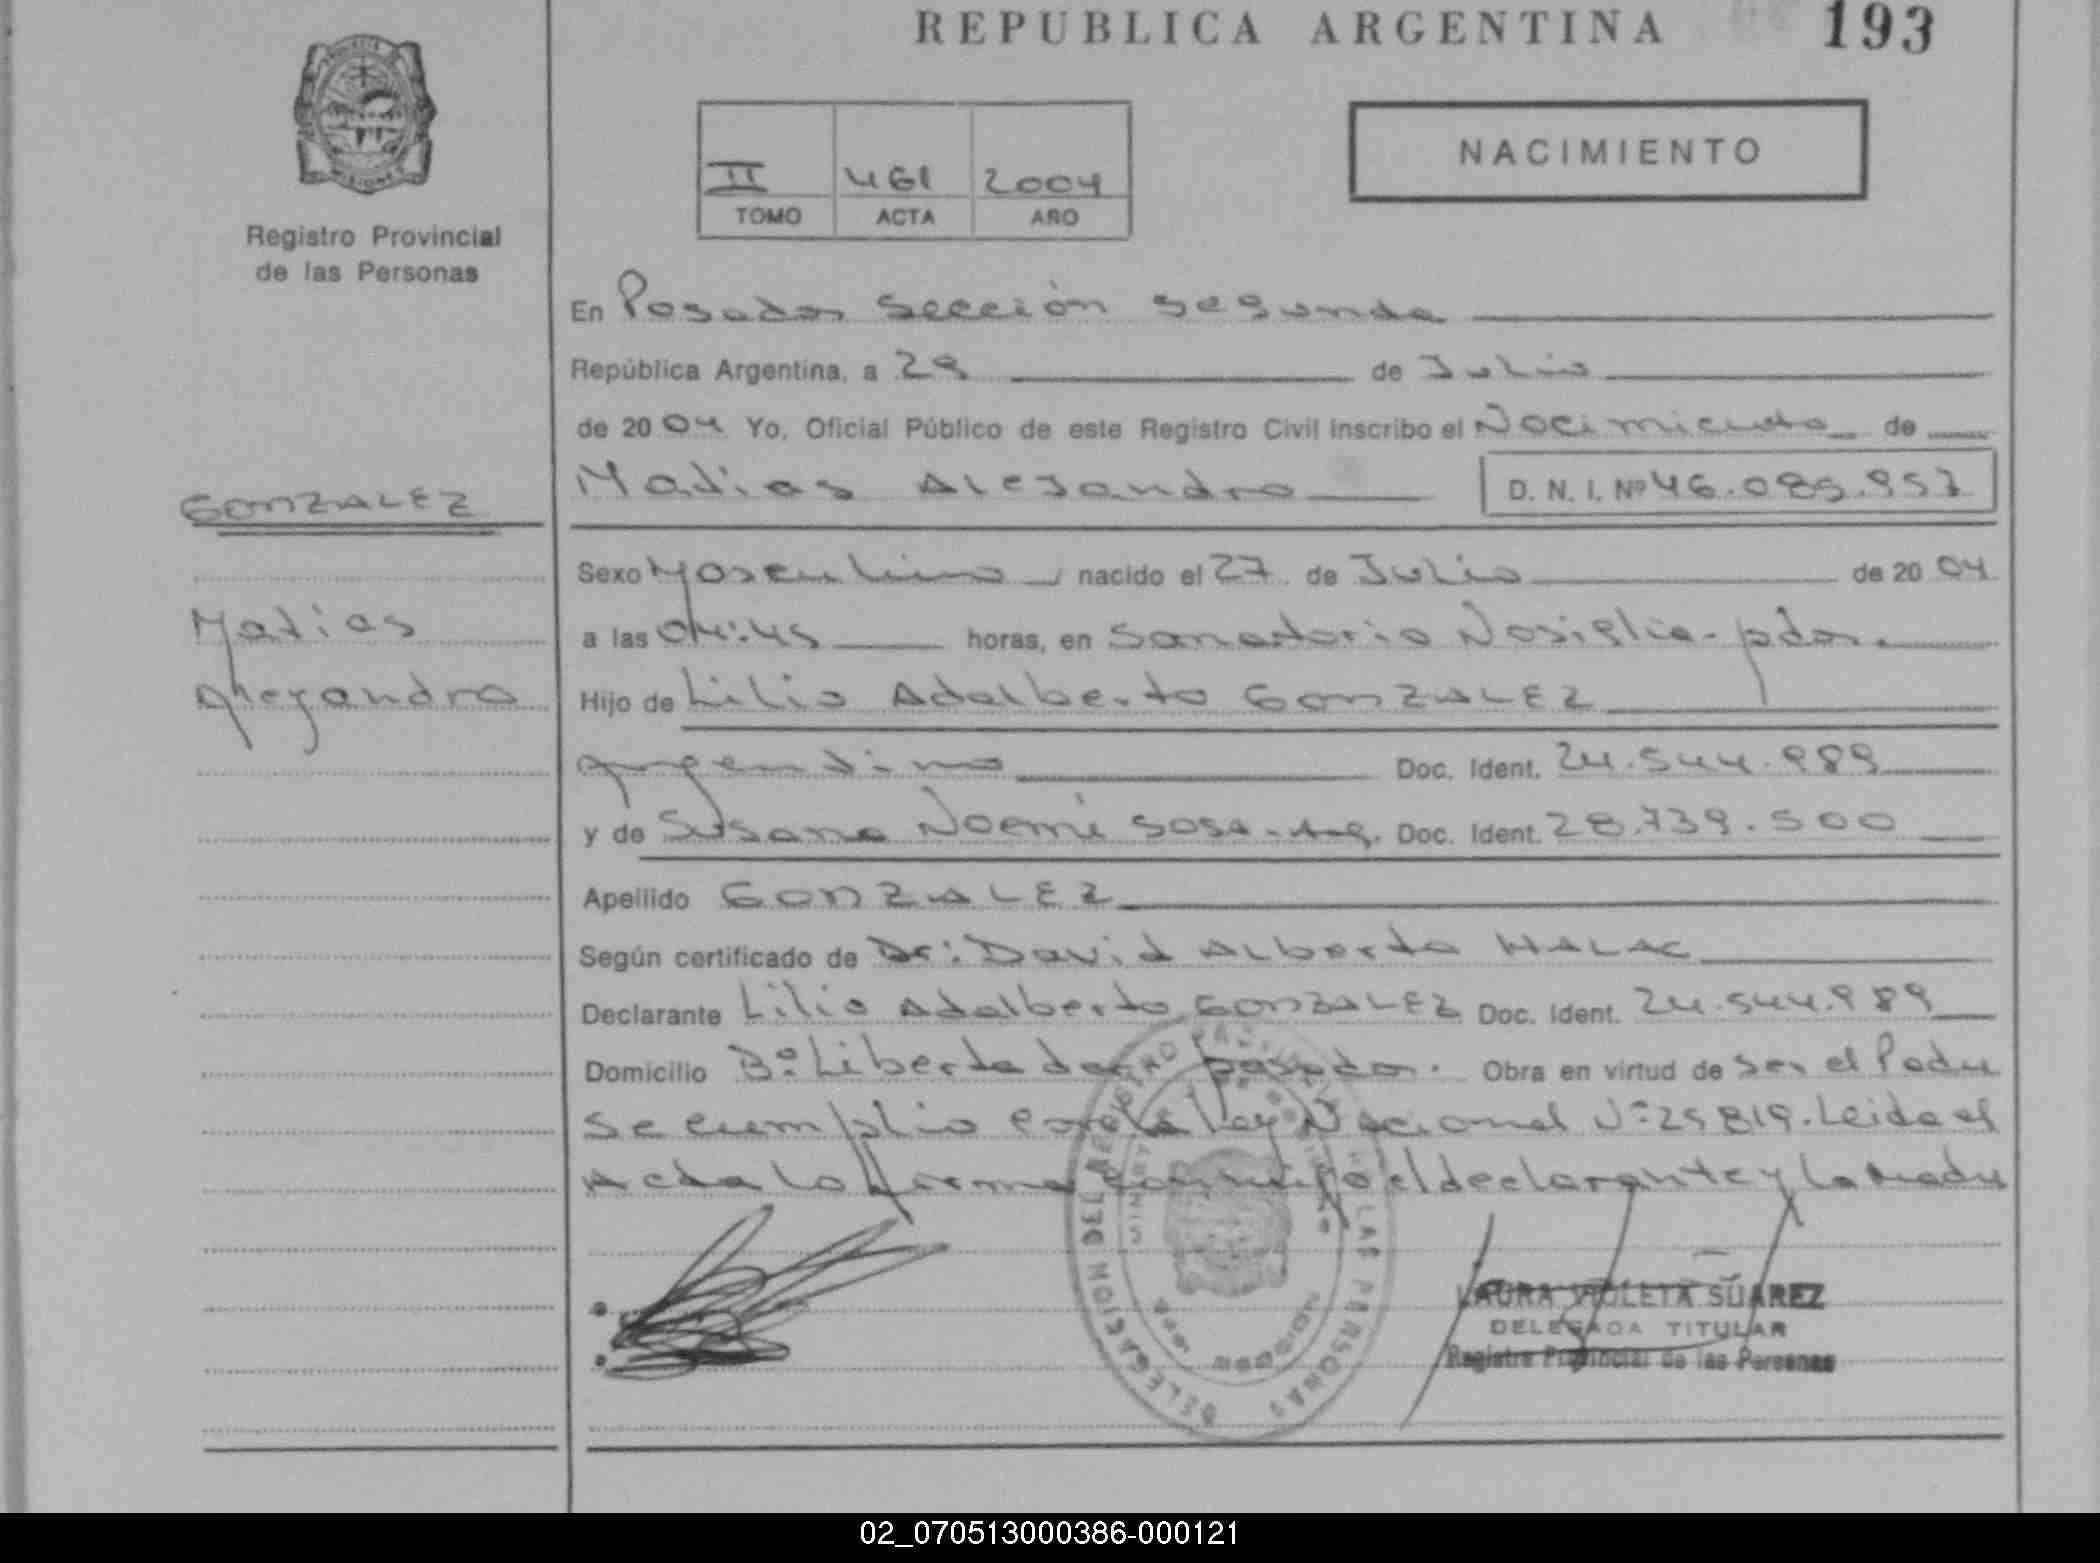 REPUBLICA ARGENTINA 193
MISIONES
Registro Provincial
de las Personas
II 461 2004
TOMO ACTA AÑO
NACIMIENTO
En Posadas Sección Segunda
República Argentina, a 29 de Julio
de 2004 Yo, Oficial Público de este Registro Civil inscribo el Nacimiento de
Matias Alejandro D. N. I. Nº 46.089.957
GONZALEZ
Sexo Masculino nacido el 27 de Julio de 2004
Matias
a las 04:45 horas, en Sanatorio Nosiglia-pdas.
Alejandro
Hijo de Lilio Adalberto GONZALEZ
Argentino Doc. Ident. 24.544.989
y de Susana Noemi Sosa-Arg. Doc. Ident. 28.739.500
Apellido GONZALEZ
Según certificado de Dr: David Alberto HALAC
Declarante Lilio Adalberto GONZALEZ Doc. Ident. 24.544.989
Domicilio Bº Libertador posadas. Obra en virtud de ser el Padre
se cumplio con la ley Nacional Nº 25819. Leida el
Acta la firma conmigo el declarante y la Madre
DELEGACION DEL REGISTRO PERSONAS
LAURA VIOLETA SUAREZ
DELEGADA TITULAR
Registro Provincial de las Personas
02_070513000386-000121